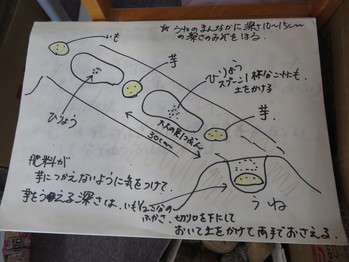 ☆ うねのまんなかに深さ10〜15cm
の深さのみぞをほる。
いも
芋
ひりょう
ひりょう
スプーン1杯
土をかける
芋
30cm
肥料が
芋につかえないように気をつけて。
芋を植える深さは、いも1つ
ふかさ、切り口を下にして
おいて土をかけて両手でおさえる。
うね